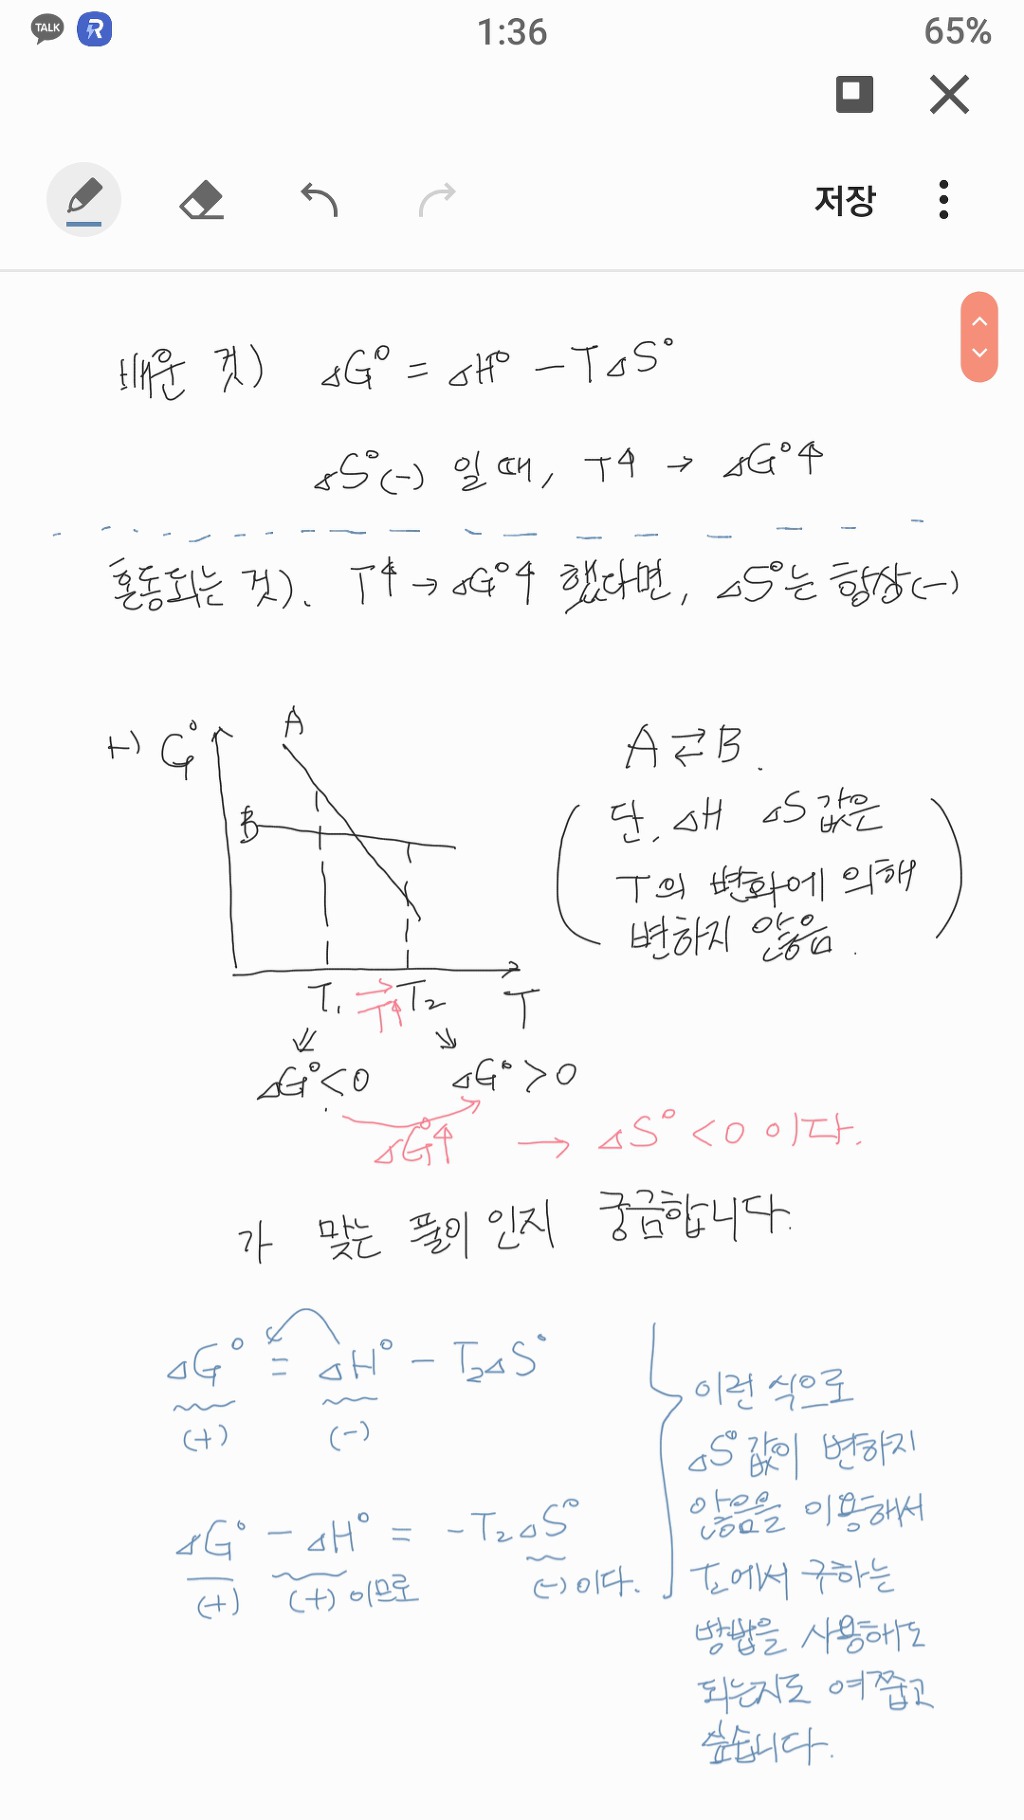 TALK R 1:36 65%
저장
배운 것) ΔG° = ΔH° - TΔS°
ΔS°(-) 일 때, T↑ → ΔG°↑
혼동되는 것). T↑ → ΔG°↑ 했다면, ΔS°는 항상(-)
G° A
B
T₁ T↑ T₂ T
ΔG°<0 ΔG°>0
ΔG°↑ → ΔS°<0 이다.
A ⇄ B.
단, ΔH ΔS 값은
T의 변화에 의해
변하지 않음.
가 맞는 풀이인지 궁금합니다.
ΔG° = ΔH° - T₂ΔS°
(+) (-)
ΔG° - ΔH° = -T₂ΔS°
(+) (+)이므로 (-)이다.
이런 식으로
ΔS°값이 변하지
않음을 이용해서
T₂에서 구하는
방법을 사용해도
되는지도 여쭙고
싶습니다.